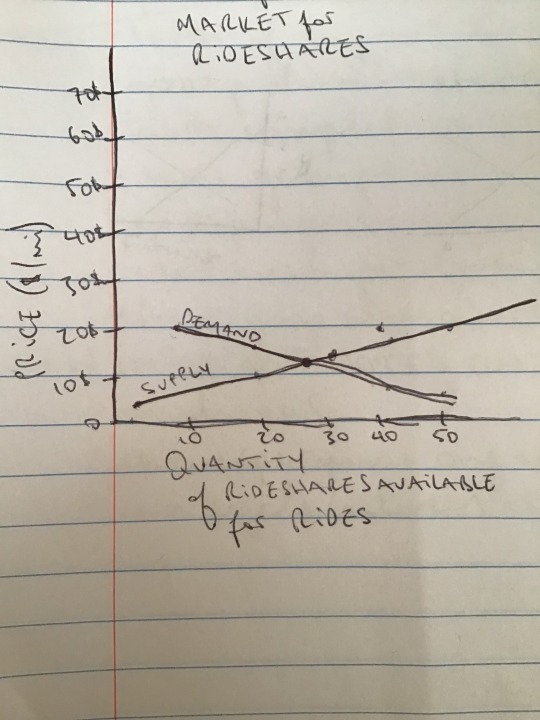 MARKET for
RIDESHARES
70$
60$
50$
40$
30$
20$
10$
0
PRICE ($/mi)
DEMAND
SUPPLY
10 20 30 40 50
QUANTITY
of RIDESHARES AVAILABLE
for RIDES